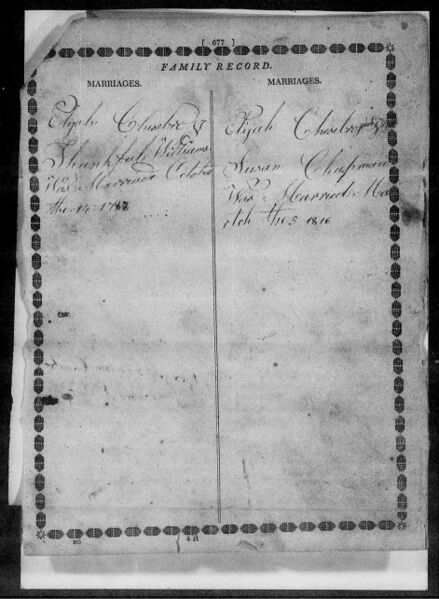 [ 677 ]
FAMILY RECORD.
MARRIAGES.
Elijah Chesebro &
Thankfull Williams
Was Married Octobr
the 14 1782
MARRIAGES.
Elijah Chesebro
Susan Chapman
Was Married Ma
rtch the 5 1816
4 H